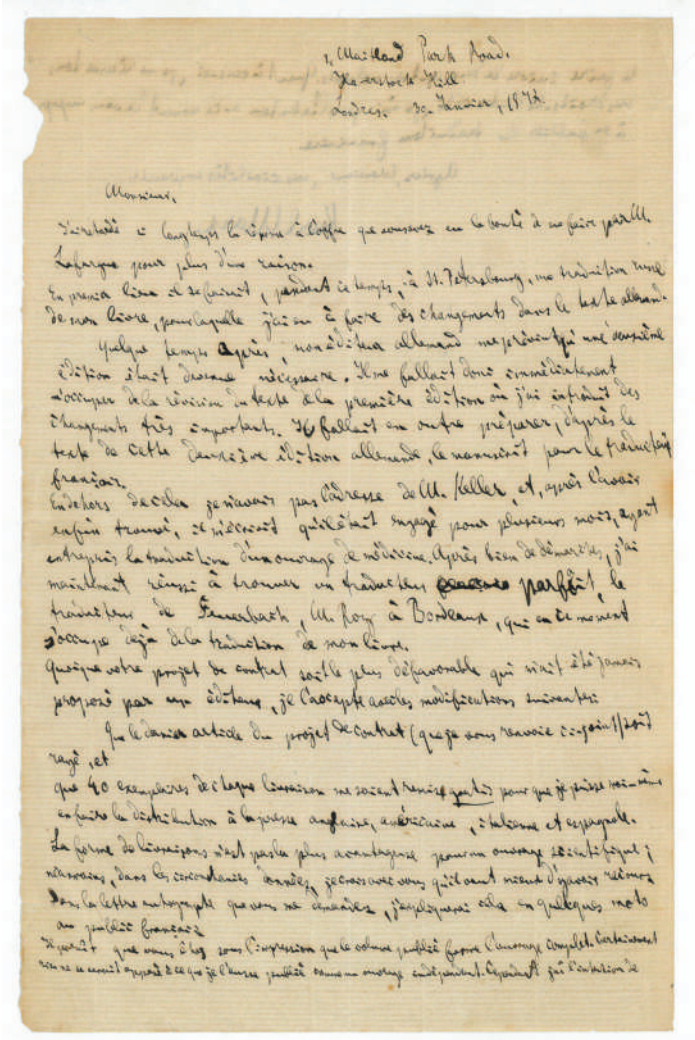 1, Maitland Park Road.
Haverstock Hill
Londres. 30. Janvier, 1872
Monsieur,
J'ai retardé si longtemps la réponse à l'offre que vous avez eu la bonté de me faire par M.
Lafargue pour plus d'une raison.
En premier lieu il se faisait, pendant ce temps, à St. Petersbourg, une traduction russe
de mon livre, pour laquelle j'ai eu à faire des changements dans le texte allemand.
Quelque temps après, mon éditeur allemand me prévint qu'une deuxième
édition était devenue nécessaire. Il me fallait donc immédiatement
m'occuper de la révision du texte de la première édition où j'ai introduit des
changements très importants. Il fallait en outre préparer, d'après le
texte de cette deuxième édition allemande, le manuscrit pour le traducteur
français.
En dehors de cela je n'avais pas l'adresse de M. Keller, et, après l'avoir
enfin trouvé, il m'écrivit qu'il était engagé pour plusieurs mois, ayant
entrepris la traduction d'un ouvrage de médicine. Après bien de démarches, j'ai
maintenant réussi à trouver un traducteur parfait, le
traducteur de Feuerbach, M. Roy à Bordeaux, qui en ce moment
s'occupe déjà de la traduction de mon livre.
Quoique votre projet de contrat soit le plus défavorable qui m'ait été jamais
proposé par un éditeur, je l'accepte avec les modifications suivantes:
Que le dernier article du projet de contrat (que je vous renvoie ci-joint) soit
rayé, et
que 40 exemplaires de chaque livraison me soient remis gratis pour que je puisse moi-même
en faire la distribution à la presse anglaise, américaine, italienne et espagnole.
La forme de livraisons n'est pas la plus avantageuse pour un ouvrage scientifique;
néanmoins, dans les circonstances données, je crois avec vous qu'il vaut mieux d'y avoir recours
Dans la lettre autographe que vous me demandez, j'expliquerai cela en quelques mots
au public français
Il paraît que vous êtes sous l'impression que le volume publié forme l'ouvrage complet. Certainement
rien ne se serait opposé à ce que je l'eusse publié comme un ouvrage indépendant. Cependant j'ai l'intention de